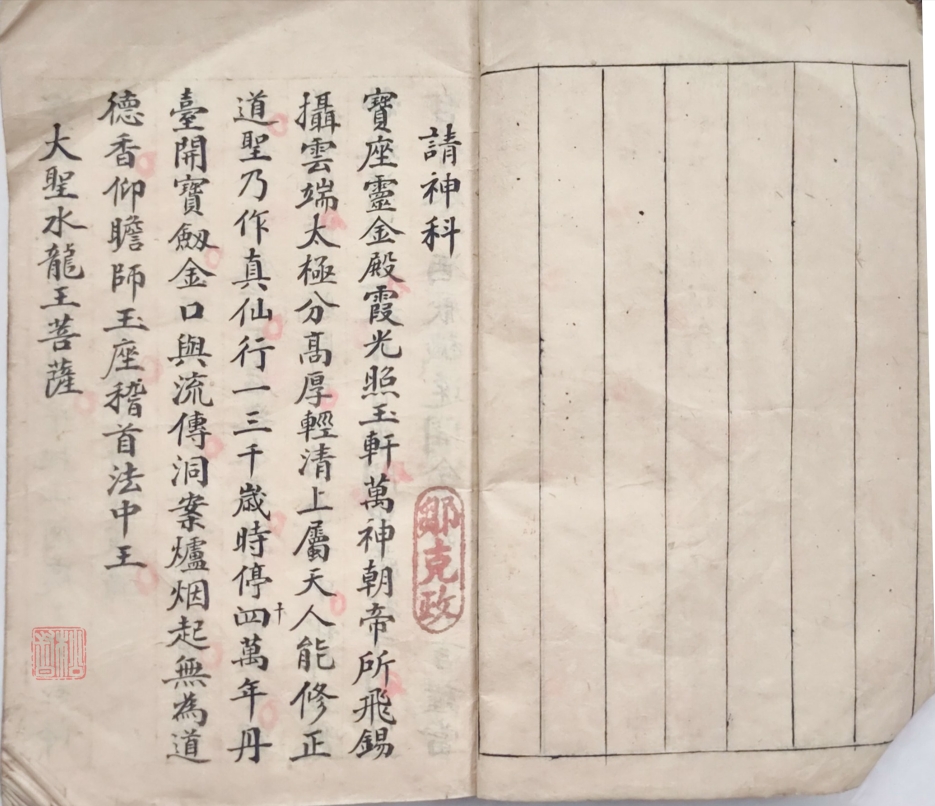 請神科
寶座靈金殿霞光照玉軒萬神朝帝所飛錫
攝雲端太極分高厚輕清上屬天人能修正
道聖乃作真仙行一三千歲時停四十萬年丹
臺開寶劔金口與流傳洞案爐烟起無為道
德香仰瞻師玉座稽首法中王
大聖水龍王菩薩
鄒克政